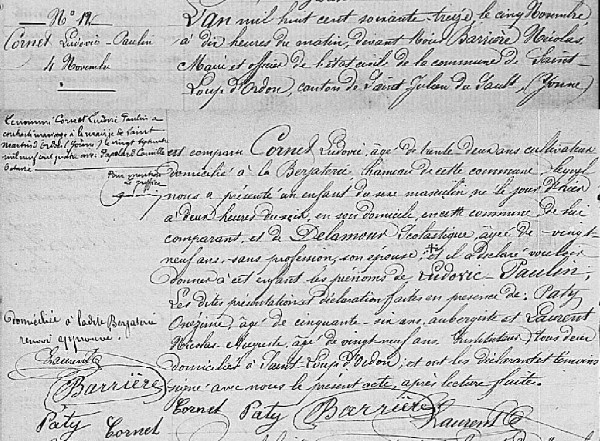 N° 12
Cornet Ludovic-Paulin
4 Novembre
L'An mil huit cent soixante-treize, le cinq Novembre
à dix heures du matin, devant Nous Barrière Nicolas
Maire et officier de l'état civil de la commune de Saint
Loup d'Ordon, canton de Saint Julien du Sault, (Yonne)
est comparu Cornet Ludovic, âgé de trente deux ans cultivateur
domicilié à la Bergaterie, hameau de cette commune, lequel
nous a présenté un enfant du sexe masculin né le jour d'hier
à deux heures du soir, en son domicile, en cette commune de lui
comparant, et de Delamour Scolastique, âgée de vingt-
neuf ans, sans profession, son épouse, et il a déclaré vouloir
donner à cet enfant les prénoms de Ludovic-Paulin,
Les dites présentation et déclaration faites en présence de: Paty
Onézime, âgé de cinquante-six ans, aubergiste et Laurent
Nicolas, âgé de vingt neuf ans, Instituteur, tous deux
domiciliés à Saint Loup d'Ordon; et ont les déclarant et témoins
signé avec nous le présent acte, après lecture faite.
Cornet Paty Barrière Laurent
Le nommé Cornet Ludovic Paulin a
contracté mariage à la mairie de Saint
Martin d'Ordon (Yonne) le vingt
mil neuf cent quatre avec Camille
Octavie
Pour mention
Le greffier
Domiciliée à la dite Bergaterie
renvoi approuvé.
Laurent
Barrière
Paty Cornet